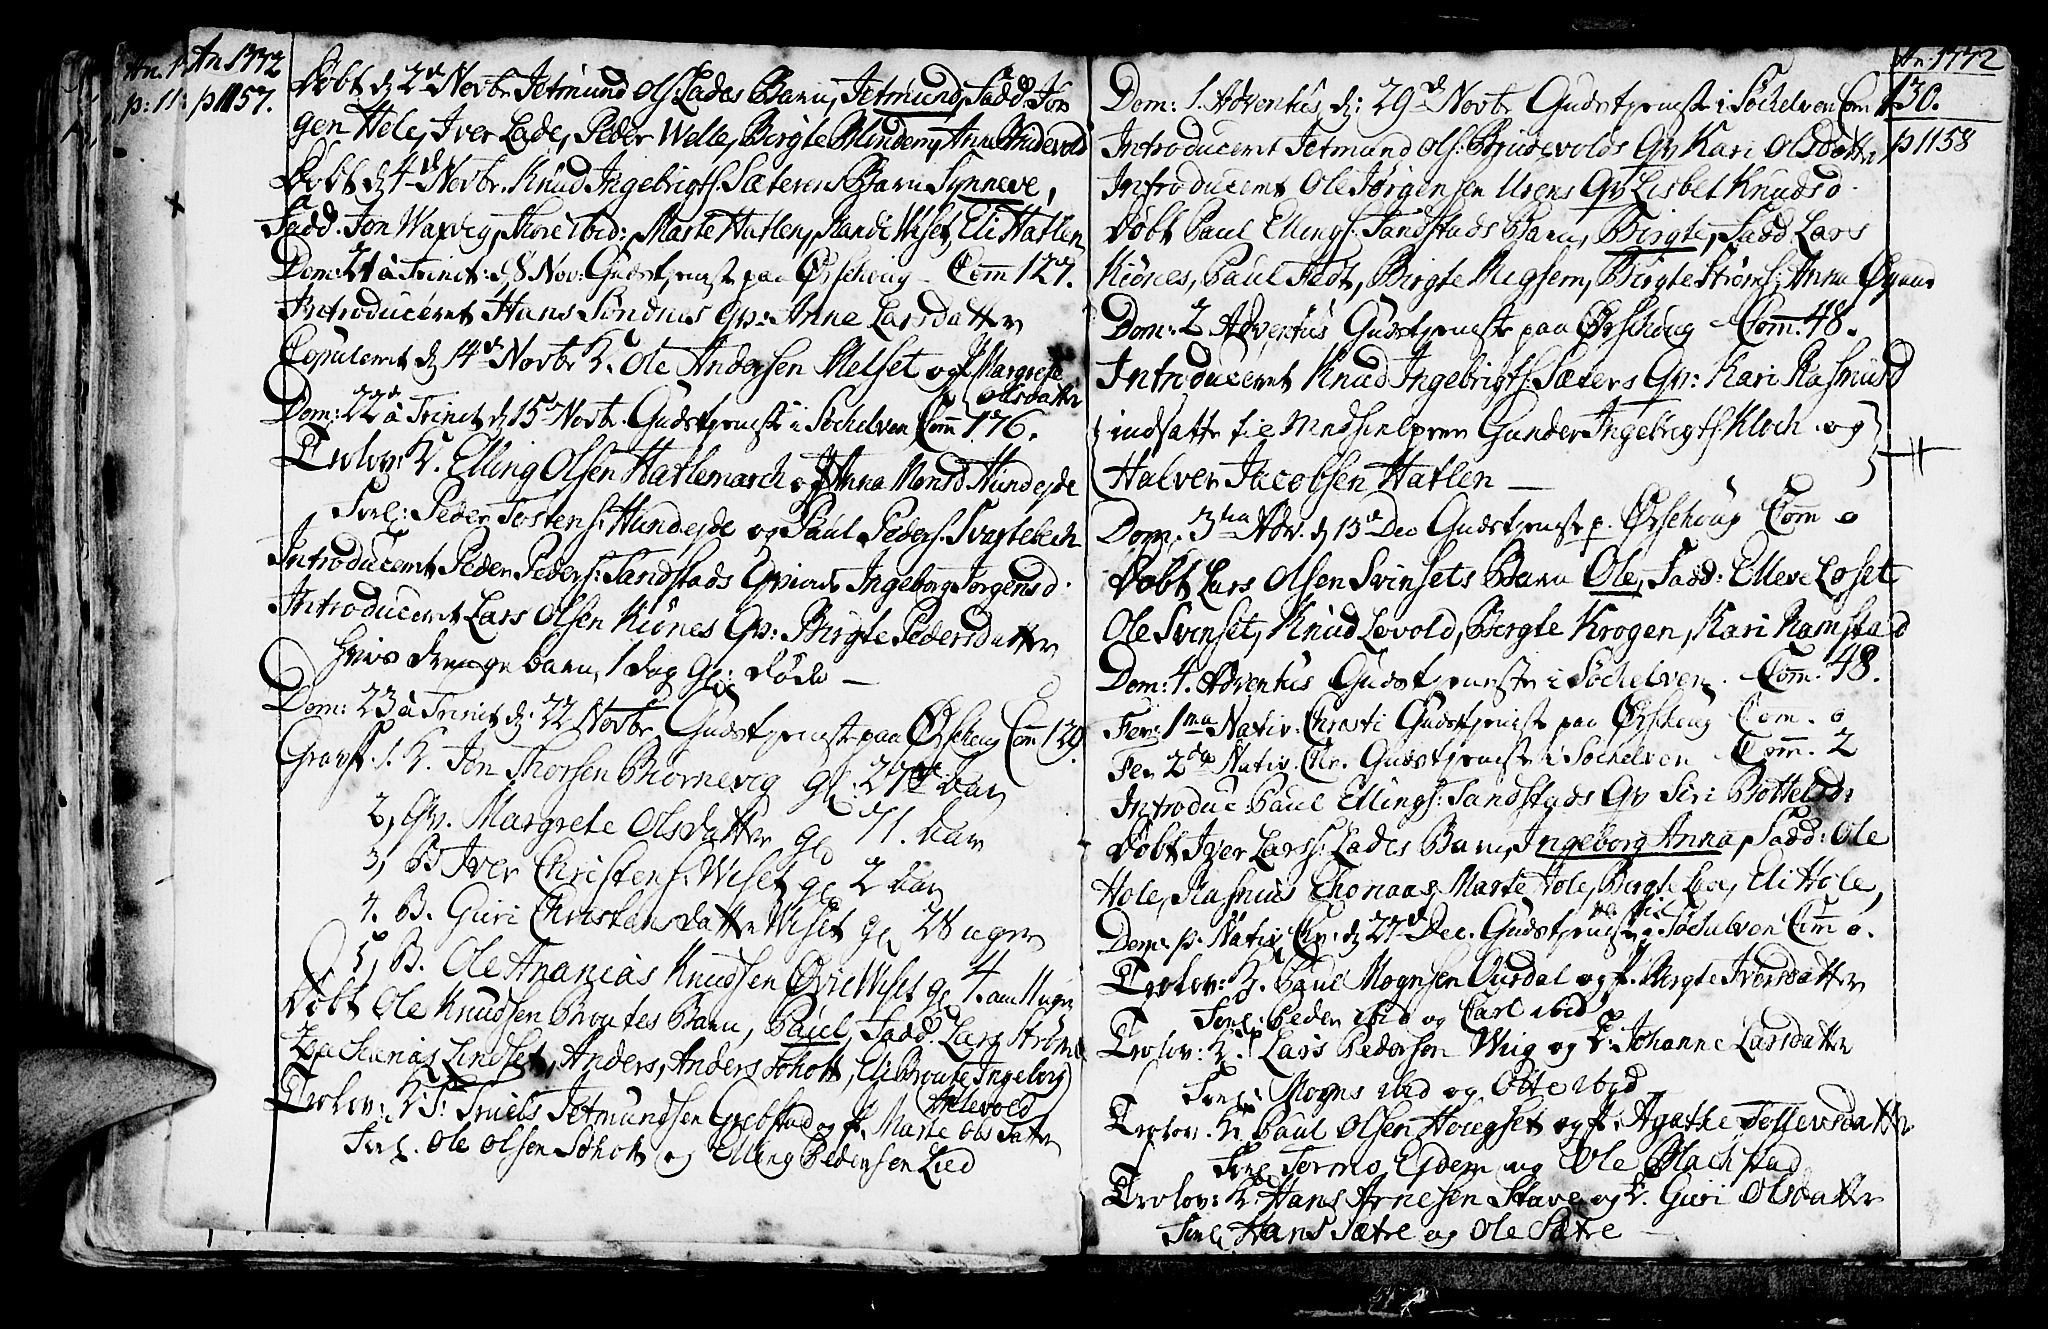 An 1772
p 1157.
Døbt d 2d Novbr Jetmund Ols: Lades Barn, Jetmund, Fadd. Jør
gen Hole, Iver Lade, Peder Welle, Birgte Mindem, Anna
Døbt d 4d Novbr. Knud Ingebrigts. Sæterens Barn Synneve,
Fadd. Jon Warvig, Thore ibid: Marte Hatlen, Randi Wiset, Eli Hatlen
Dom: 21 à Trinit: d 8 Nov: Gudstjenest paa Ørschoug – Comm 127.
Introduceret Hans Søndnes Qv: Anne Larsdatter
Copuleret d 14d Novbr K. Ole Andersen Melset og P Margrete
Olsdatter
Dom: 22d à Trinit d 15d Novbr. Gudstjenest i Søchelven Comm 176.
Trolov: K. Elling Olsen Hatlemarch og P Anna Monsd Hundejde
Forl: Peder Tostens: Hundejde og Paul Peders. Svartebech
Introduceret Peder Peders: Sandstads Qvinde Ingeborg Jørgensd.
Introduceret Lars Olsen Kiønes Qv: Birgte Pedersdatter
hvis drenge barn, 1 dag gl: døde –
Dom: 23 à Trinit d. 22 Novbr. Gudstjenest paa Ørschoug Com 129.
Gravf. 1. K. Jon Thorsen Biørnevig gl: 27 aar
2, Qv. Margrete Olsdatter gl 71. aar
3, B Iver Christens: Wiset gl 2 aar
4. B. Guri Christensdatter Wiset gl 28 uger
5, B. Ole Ananias Knudsen Øvre Wiset gl 4 aar 11 uger
Døbt Ole Knudsen Broutes Barn, Paul, Fadd. Lars Strømme
Zacharias Lindset, Anders, Anders Schott, Eli Broute, Ingeborg
Anlevold
Trolov: K. S: Truels Jetmundsen Grebstad og P. Marte Olsdatter
Forl. Ole Olsen Schott og Elling Pedersen Lied
An: 1772
Dom: 1. Adventus, d: 29d Novbr Gudstjenest i Søchelven Com 130.
p 1158
Introduceret Jetmund Ols: Brudevolds Qv Kari Olsdatter
Introduceret Ole Jørgensen Urens Qv Lisbet Knudsd.
Døbt Paul Ellings. Sandstads Barn, Birgte, Fadd. Lars
Kiønes, Paul Tedt, Birgte Megsem, Birgte Strøms: Anna
Dom: 2 Adventus Gudstjeneste paa Ørschoug – Comm. 48.
Introduceret Knud Ingebrigts: Sæters Qv: Kari Rasmusd
indsatte til Medhielpere Gunder Ingebrigts Kloch og
Halver Jacobsen Hatlen –
Dom: 3tia Adv. d 13d Dec Gudstjeneste p. Ørschoug Com 0
Døbt Lars Olsen Svinsets Barn Ole, Fadd: Elleve Løset
Ole Svinset, Knud Levold, Birgte Krogen, Kari Ramstad
Dom: 4. Adventus Gudstjeneste i Søchelven. – Com. 48.
Fer: 1ma Nativ. Christi Gudstjenest paa Ørschoug Com. 0
Fer 2da Nativ. Chr. Gudstjenest i Søchelven – Comm. 2
Introduc Paul Ellings: Sandstads Qv Siri Bottelsd:
Døbt Iver Larss: Lades Barn, Ingeborg Anna, Fadd: Ole
Hole, Rasmus Thonaas, Marte Hole, Birgte Lade, Eli Hole,
Dom: p. Nativ. Chr: d 27d Dec. Gudstjenest i Søchelven Com 0.
Trolov: K. Paul Mognsen Aursdal og P. Birgte Iversdatter
Forl: Peder ibid og Carl ibid
Trolov: K. Lars Pedersen Wiig og P: Johanne Larsdatter
Forl: Mogns ibid og Otte ibid
Trolov. K Paul Olsen Houguset og P. Agathe Tollevsdatter
Forl Tormo Ejdem og Ole Blachstad
Trolov: K: Hans Arnesen Stave og P. Guri Olsdatter
Forl Hans Sætre og Ole Sætre –